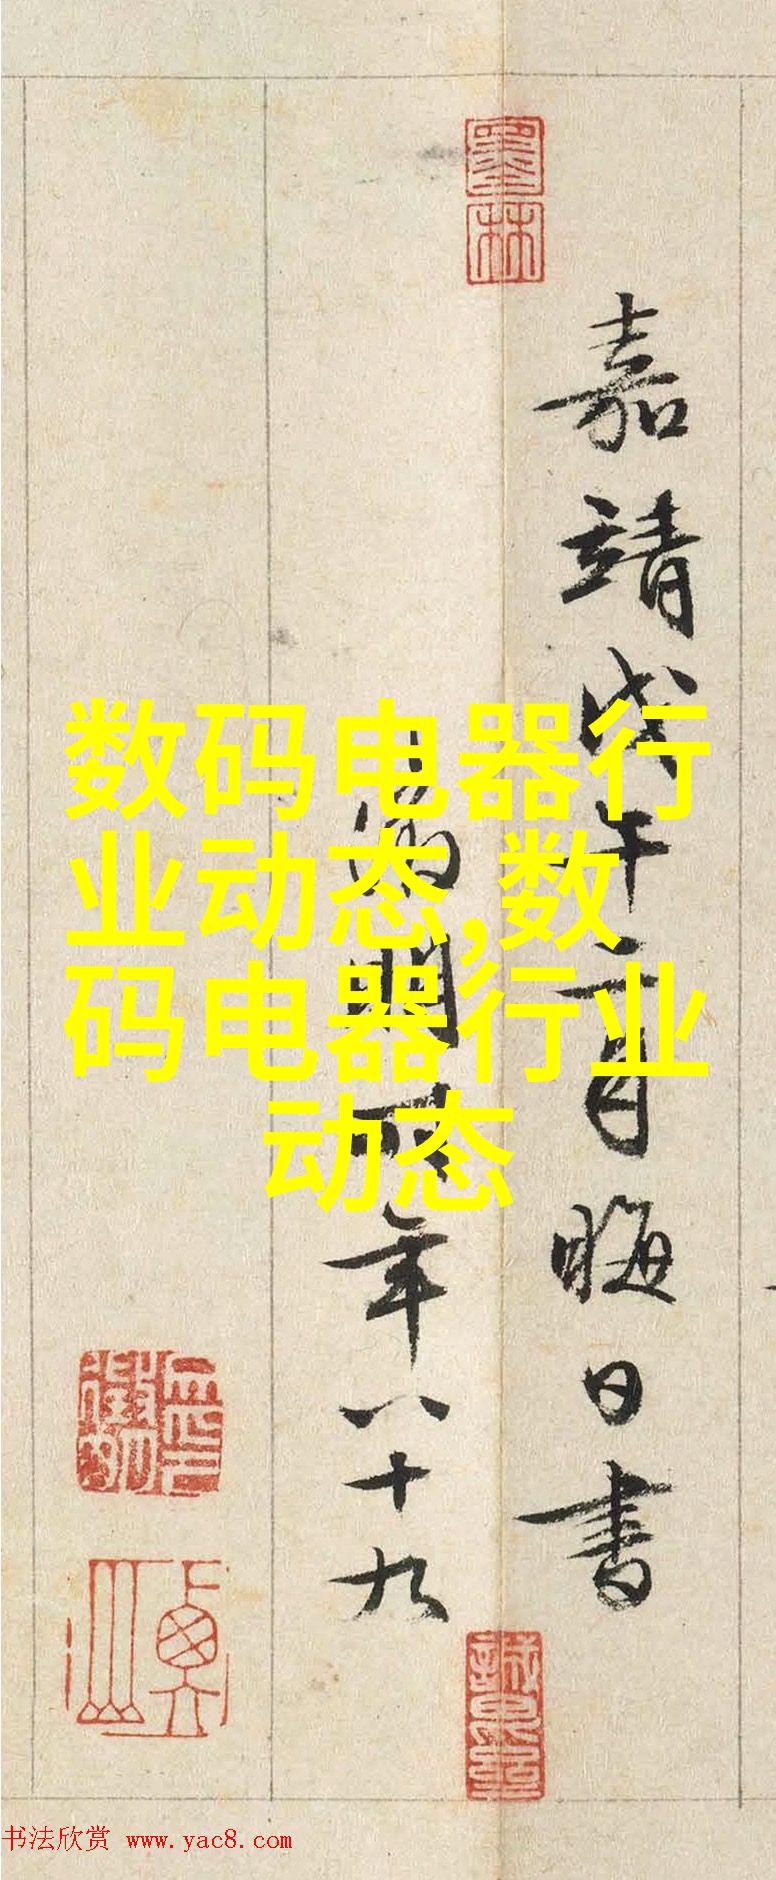 嘉靖戊午二月晦日書
徵明時年八十九
墨林
數码电器行
业动态,数
码电器行业
动态
书法欣赏 www.yac8.com